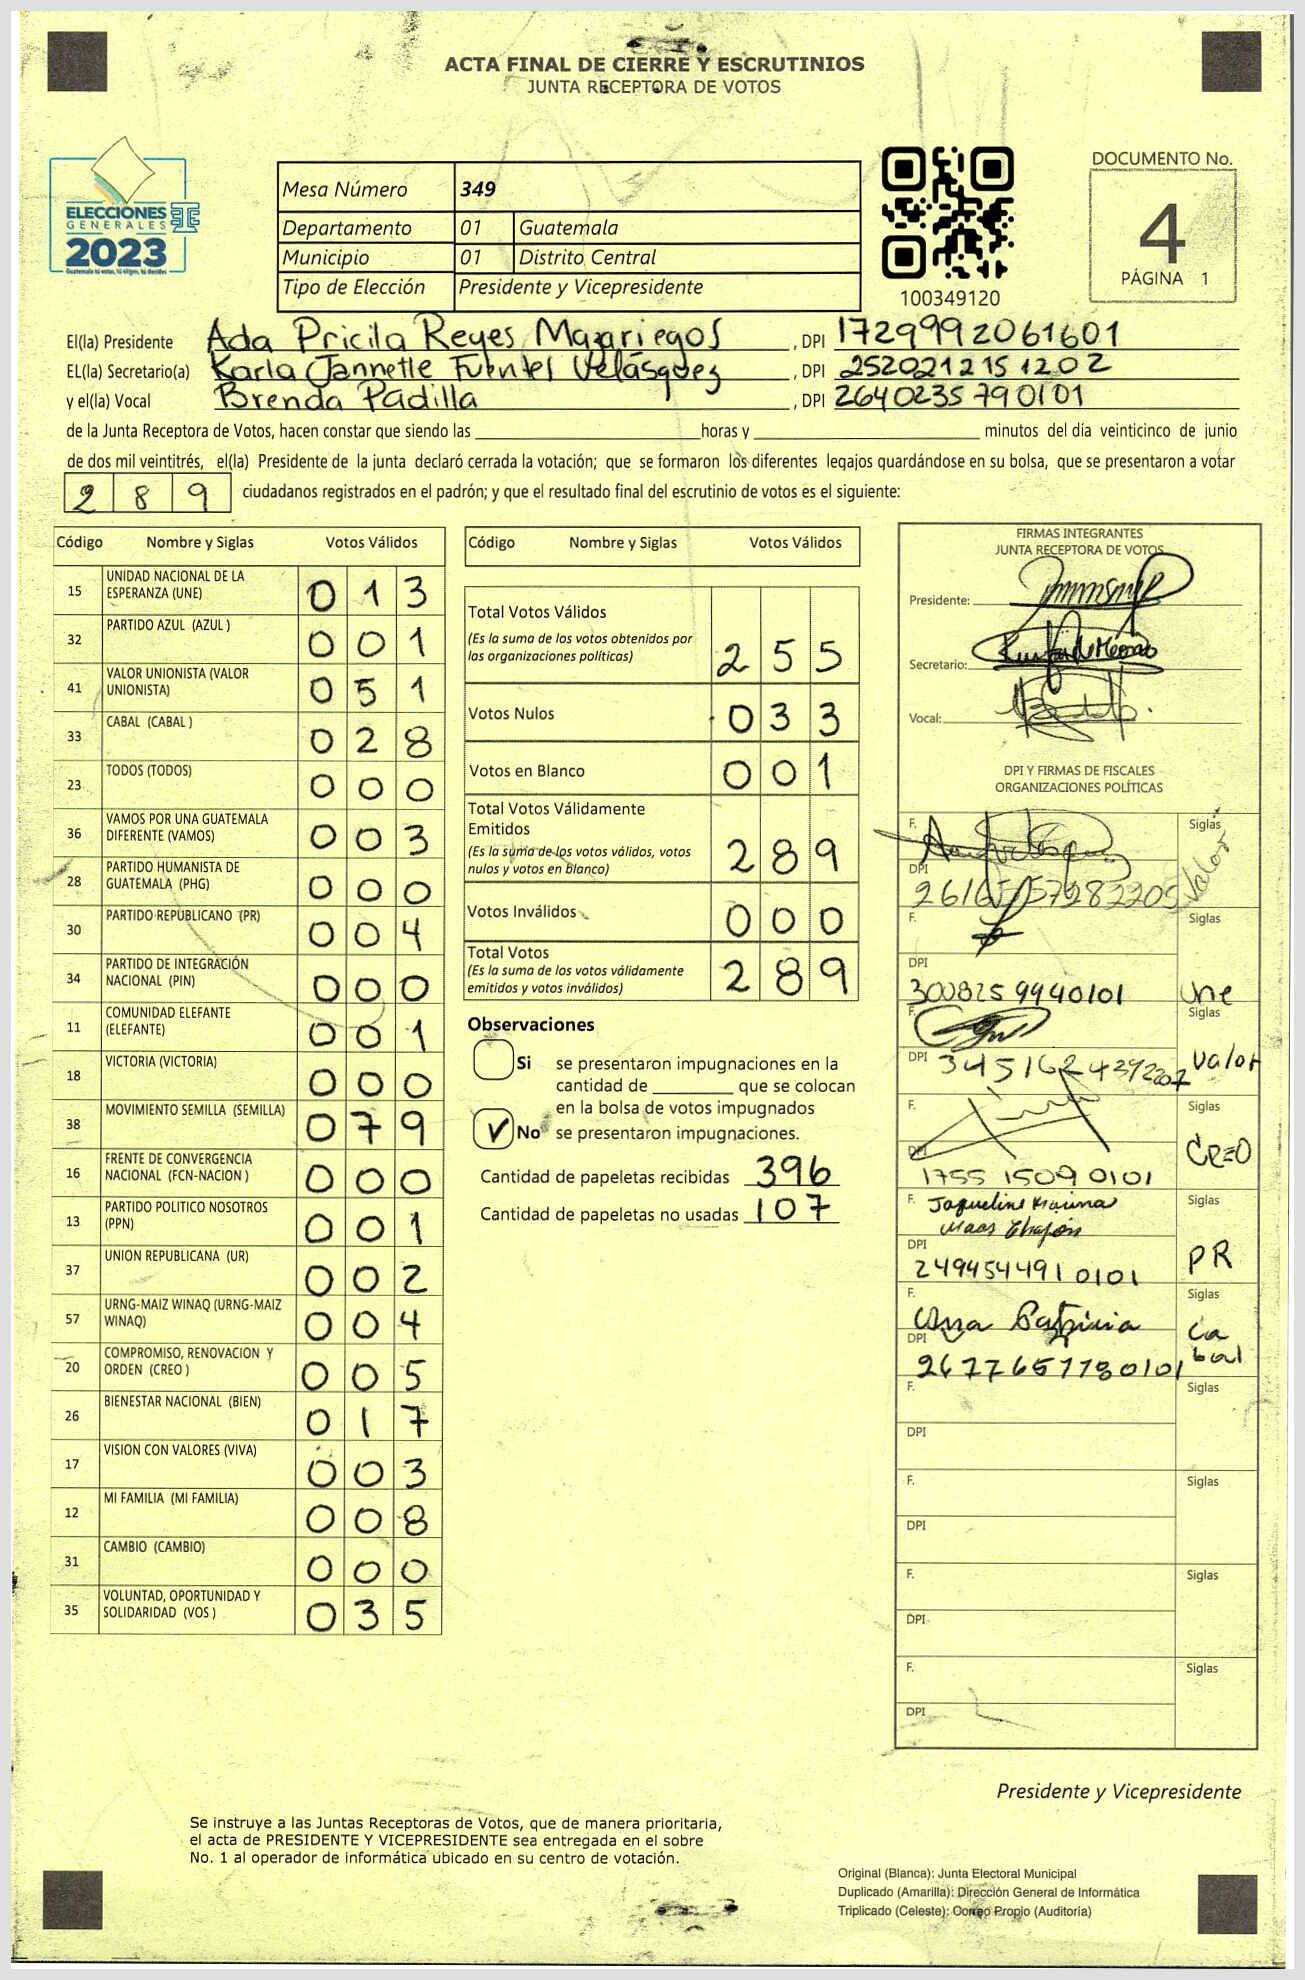 ACTA FINAL DE CIERRE Y ESCRUTINIOS
JUNTA RECEPTORA DE VOTOS
ELECCIONES
GENERALES
2023
Guatemala tú votas, tú eliges, tú decides
Mesa Número 349
Departamento 01 Guatemala
Municipio 01 Distrito Central
Tipo de Elección Presidente y Vicepresidente
100349120
DOCUMENTO No.
4
PÁGINA 1
El(la) Presidente Ada Pricila Reyes Mazariegos, DPI 1729992061601
EL(la) Secretario(a) Karla Jannette Fuentes Velásquez, DPI 2520212151202
y el(la) Vocal Brenda Padilla, DPI 2640235790101
de la Junta Receptora de Votos, hacen constar que siendo las horas y minutos del día veinticinco de junio
de dos mil veintitrés, el(la) Presidente de la junta declaró cerrada la votación; que se formaron los diferentes legajos guardándose en su bolsa, que se presentaron a votar
289 ciudadanos registrados en el padrón; y que el resultado final del escrutinio de votos es el siguiente:
Código Nombre y Siglas Votos Válidos
15 UNIDAD NACIONAL DE LA ESPERANZA (UNE) 013
32 PARTIDO AZUL (AZUL ) 001
41 VALOR UNIONISTA (VALOR UNIONISTA) 051
33 CABAL (CABAL ) 028
23 TODOS (TODOS) 000
36 VAMOS POR UNA GUATEMALA DIFERENTE (VAMOS) 003
28 PARTIDO HUMANISTA DE GUATEMALA (PHG) 000
30 PARTIDO REPUBLICANO (PR) 004
34 PARTIDO DE INTEGRACIÓN NACIONAL (PIN) 000
11 COMUNIDAD ELEFANTE (ELEFANTE) 001
18 VICTORIA (VICTORIA) 000
38 MOVIMIENTO SEMILLA (SEMILLA) 079
16 FRENTE DE CONVERGENCIA NACIONAL (FCN-NACION ) 000
13 PARTIDO POLITICO NOSOTROS (PPN) 001
37 UNION REPUBLICANA (UR) 002
57 URNG-MAIZ WINAQ (URNG-MAIZ WINAQ) 004
20 COMPROMISO, RENOVACION Y ORDEN (CREO ) 005
26 BIENESTAR NACIONAL (BIEN) 017
17 VISION CON VALORES (VIVA) 003
12 MI FAMILIA (MI FAMILIA) 008
31 CAMBIO (CAMBIO) 000
35 VOLUNTAD, OPORTUNIDAD Y SOLIDARIDAD (VOS ) 035
Código Nombre y Siglas Votos Válidos
Total Votos Válidos
(Es la suma de los votos obtenidos por las organizaciones políticas) 255
Votos Nulos 033
Votos en Blanco 001
Total Votos Válidamente Emitidos
(Es la suma de los votos válidos, votos nulos y votos en blanco) 289
Votos Inválidos 000
Total Votos
(Es la suma de los votos válidamente emitidos y votos inválidos) 289
Observaciones
Si se presentaron impugnaciones en la
cantidad de que se colocan
en la bolsa de votos impugnados
✓ No se presentaron impugnaciones.
Cantidad de papeletas recibidas 396
Cantidad de papeletas no usadas 107
FIRMAS INTEGRANTES
JUNTA RECEPTORA DE VOTOS
Presidente:
Secretario:
Vocal:
DPI Y FIRMAS DE FISCALES
ORGANIZACIONES POLÍTICAS
F. Siglas Valor
DPI
F. Siglas Une
DPI 3008259940101
F. Siglas Valor
DPI
F. Siglas CREO
DPI 1755 15090101
F. Jaqueline Marina Siglas PR
Maas Chajón
DPI 2494544910101
F. Siglas Cabal
DPI 2677657780101
F. Siglas
DPI
F. Siglas
DPI
F. Siglas
DPI
F. Siglas
DPI
Presidente y Vicepresidente
Se instruye a las Juntas Receptoras de Votos, que de manera prioritaria,
el acta de PRESIDENTE Y VICEPRESIDENTE sea entregada en el sobre
No. 1 al operador de informática ubicado en su centro de votación.
Original (Blanca): Junta Electoral Municipal
Duplicado (Amarilla): Dirección General de Informática
Triplicado (Celeste): Correo Propio (Auditoría)